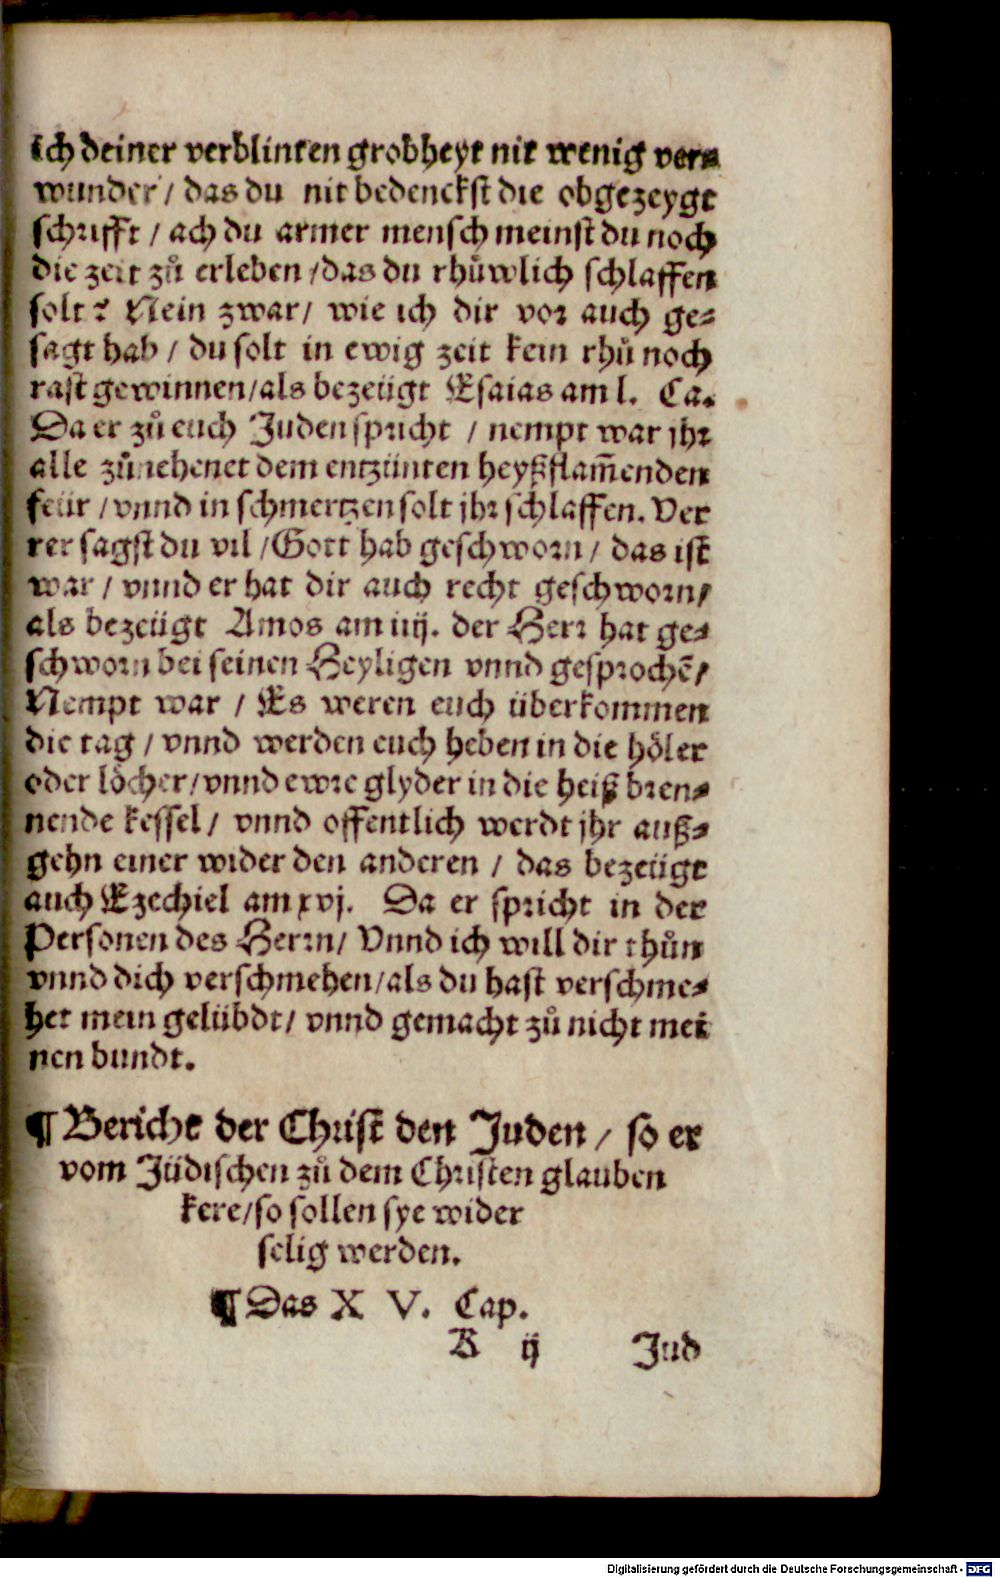 ich deiner verblinten grobheyt nit wenig ver⸗
wunder / das du nit bedenckst die obgezeygt
schrifft / ach du armer mensch meinst du noch
die zeit zů erleben / das du rhůwlich schlaffen
solt? Nein zwar / wie ich dir vor auch ge⸗
sagt hab / du solt in ewig zeit kein rhů noch
rast gewinnen / als bezeügt Esaias am l. Ca.
Da er zů euch Juden spricht / nempt war jhr
alle zůnehenet dem entzünten heyßflam̄enden
feür / vnnd in schmertzen solt jhr schlaffen. Ver
rer sagst du vil / Gott hab geschworn / das ist
war / vnnd er hat dir auch recht geschworn /
als bezeügt Amos am iiij. der Herr hat ge⸗
schworn bei seinen Heyligen vnnd gesprochē /
Nempt war / Es weren euch überkommen
die tag / vnnd werden euch heben in die höler
oder löcher / vnnd ewre glyder in die heiß bren⸗
nende kessel / vnnd offentlich werdt jhr auß⸗
gehn einer wider den anderen / das bezeügt
auch Ezechiel am xvj. Da er spricht in der
Personen des Herrn / Vnnd ich will dir thůn
vnnd dich verschmehen / als du hast verschme⸗
het mein gelübdt / vnnd gemacht zů nicht mei
nen bundt.
¶ Bericht der Christ den Juden / so er
vom Jüdischen zů dem Christen glauben
kere / so sollen sye wider
selig werden.
¶ Das X V. Cap.
K ij Jud
Digitalisierung gefördert durch die Deutsche Forschungsgemeinschaft - DFG